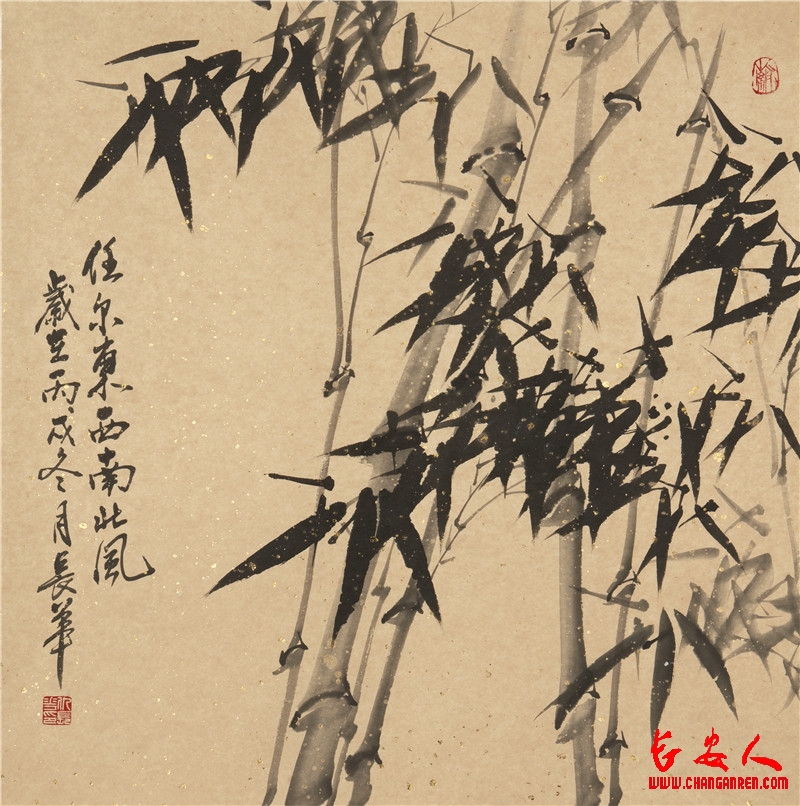 任尔东西南北风
歲在丙戌冬月長華
長安人
www.CHANGANREN.com